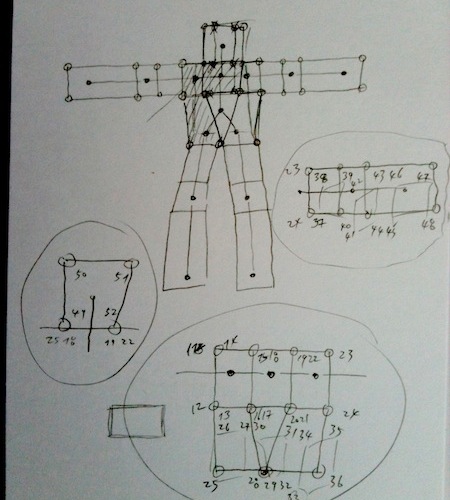 23 38 39 42 43 46 47
24 37 40 41 44 45 48
50 51
49 52
25 18 19 22
14 1922 23
12 13 1617 2021 24
26 27 30 31 34 35
25 28 29 32 36
33